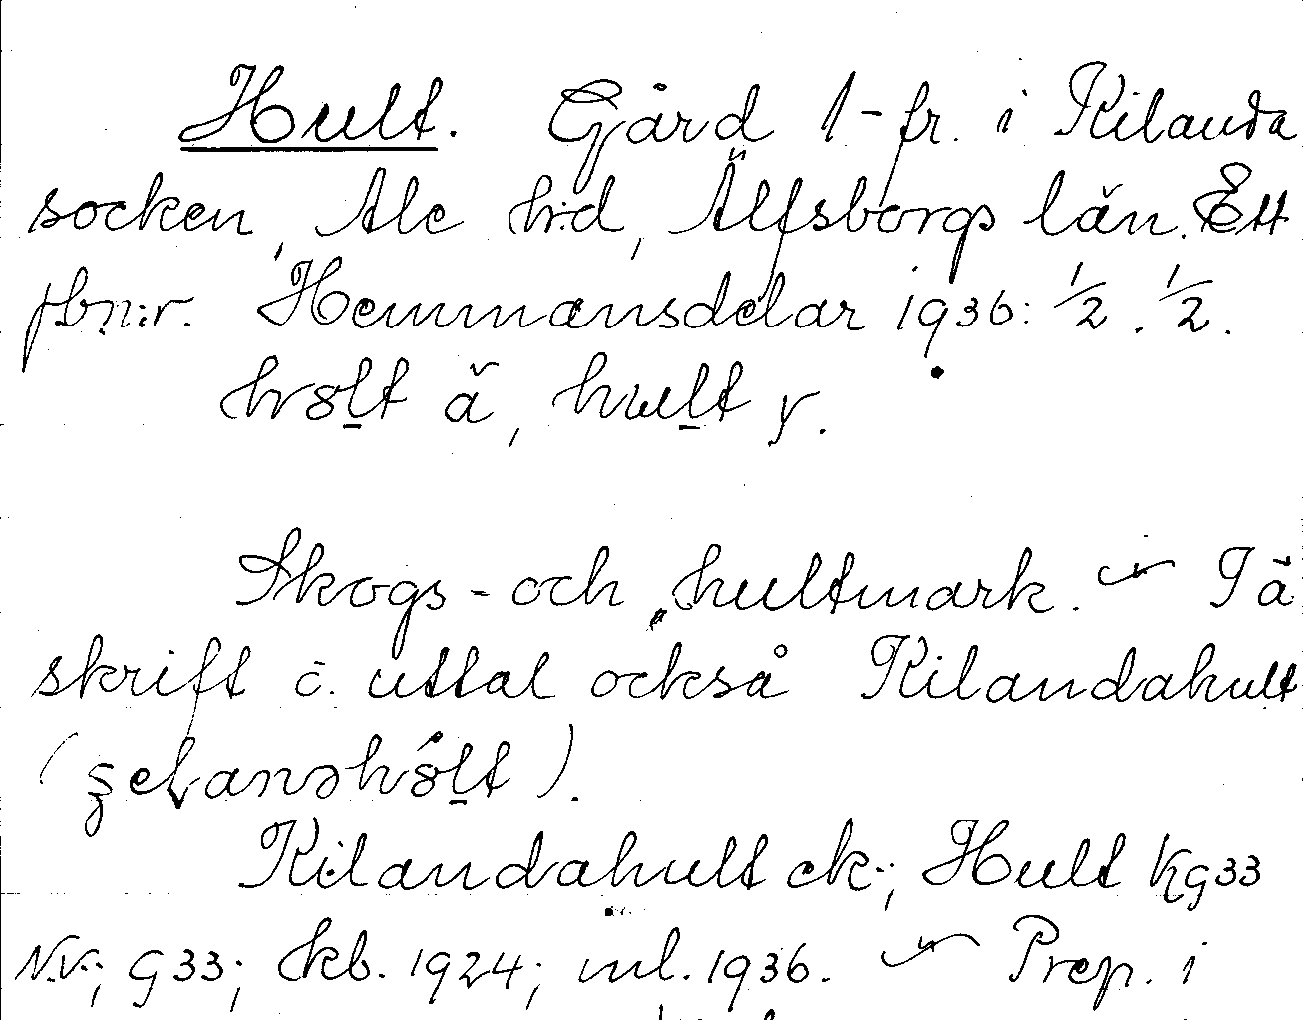 Hult. Gård 1-fr. i Kilanda
socken, Ale h:d, Älfsborgs län. Ett
jbn:r. Hemmansdelar 1936: 1/2. 1/2.
hult y.
Skogs- och hultmark. I ä
skrift o. uttal också Kilandahult
Kilandahult ek.; Hult Kg33
N.V.; G33; Ekb. 1924; ml. 1936. Prep. i